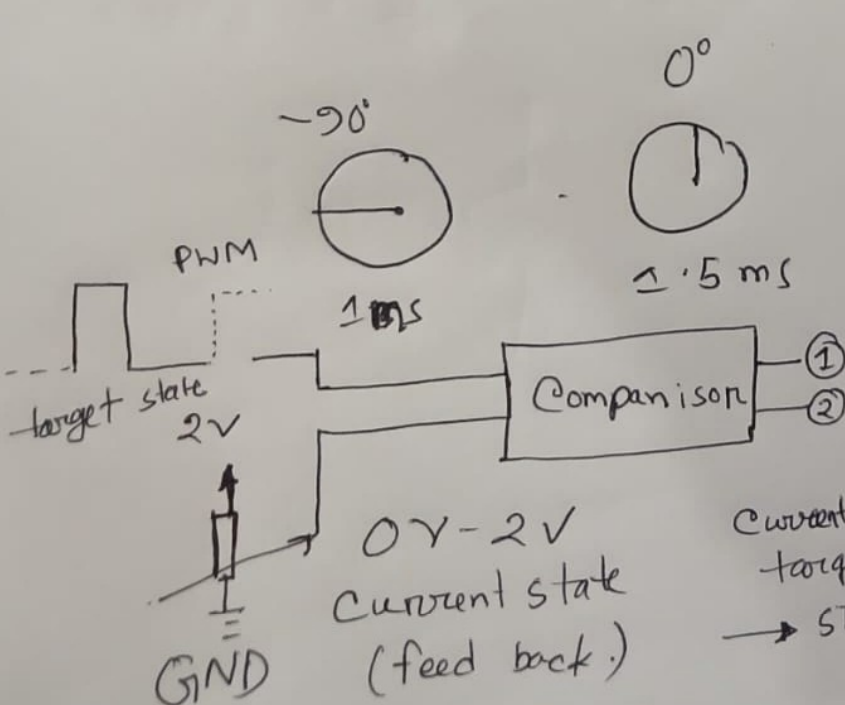 -90°
0°
PWM
1ms
1.5 ms
target state
2V
Companison
1
2
0V-2V
Current state
(feed back.)
GND
Current
targ
→ S